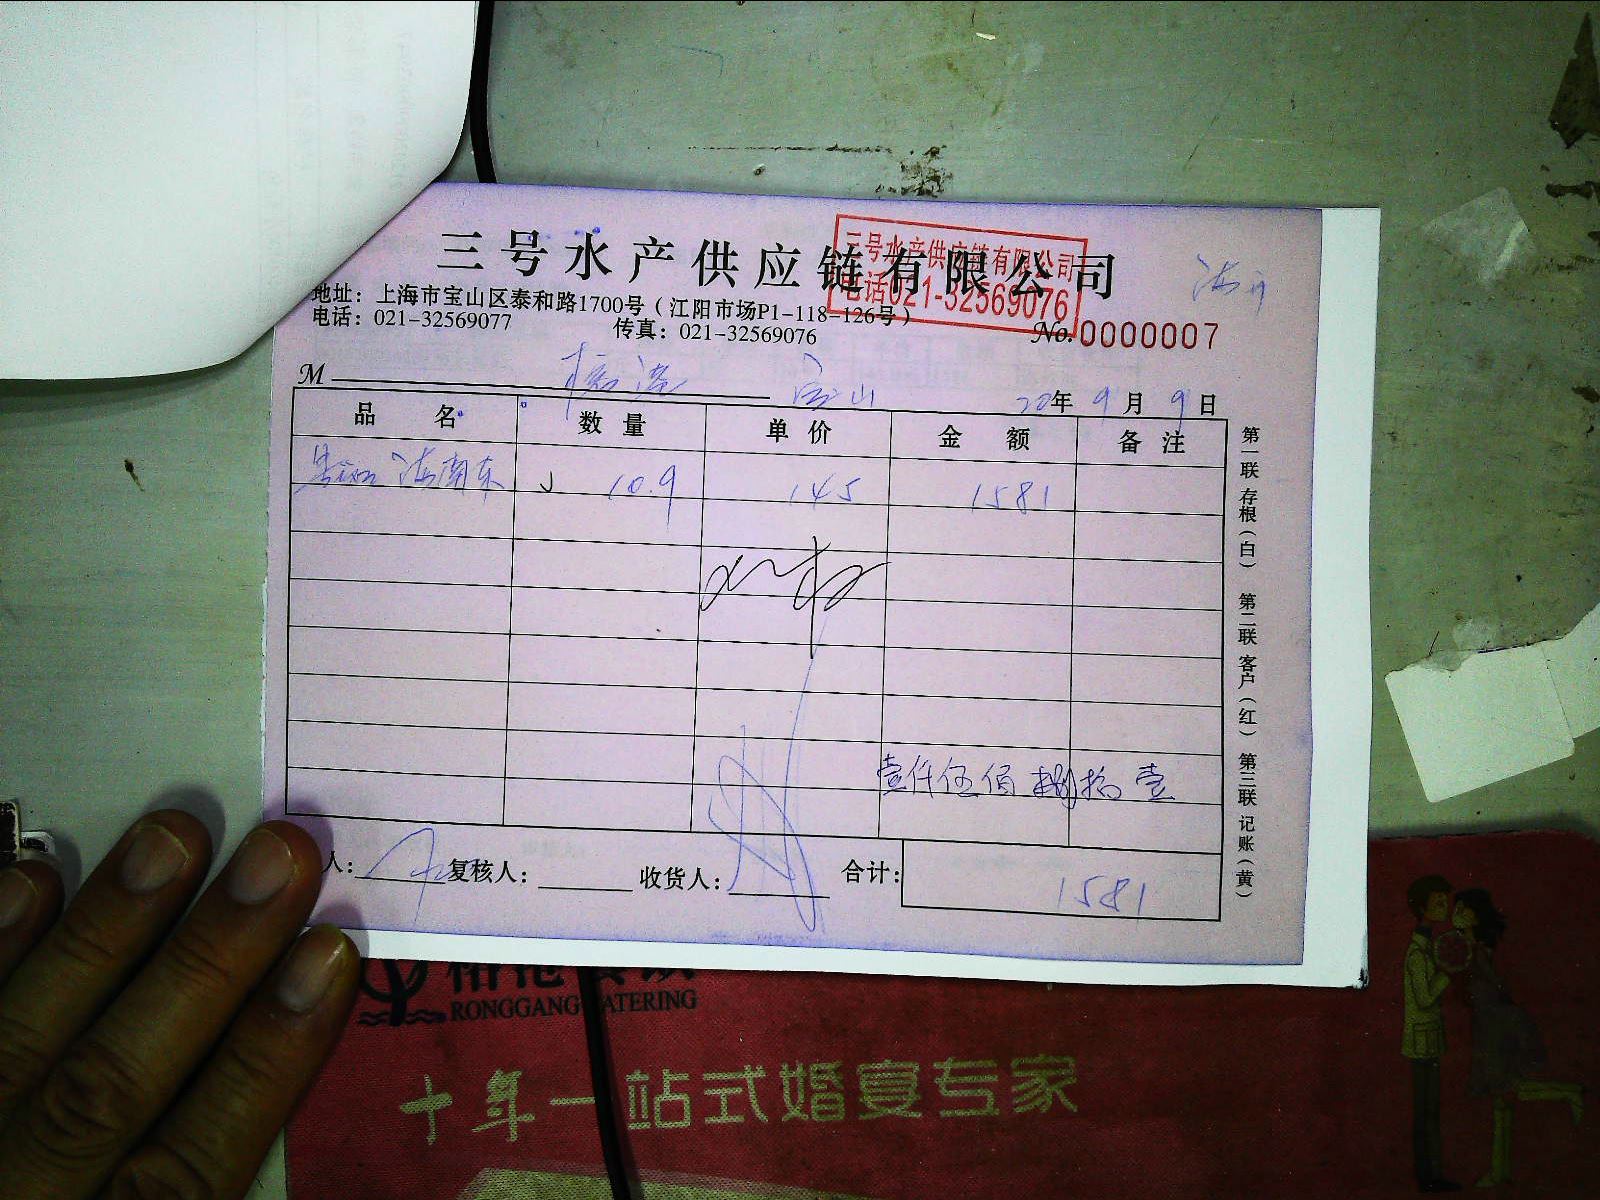 三号水产供应链有限公司
三号水产供应链有限公司
电话021-32569076
地址：上海市宝山区泰和路1700号（江阳市场P1-118-126号）
电话：021-32569077 传真：021-32569076
No.0000007
M 宝山 20年 9月 9日
品名 数量 单价 金额 备注
海南东 10.9 145 1581
壹仟伍佰捌拾壹
人： 复核人： 收货人： 合计：1581
第一联存根（白） 第二联客户（红） 第三联记账（黄）
RONGGANG CATERING
十年一站式婚宴专家